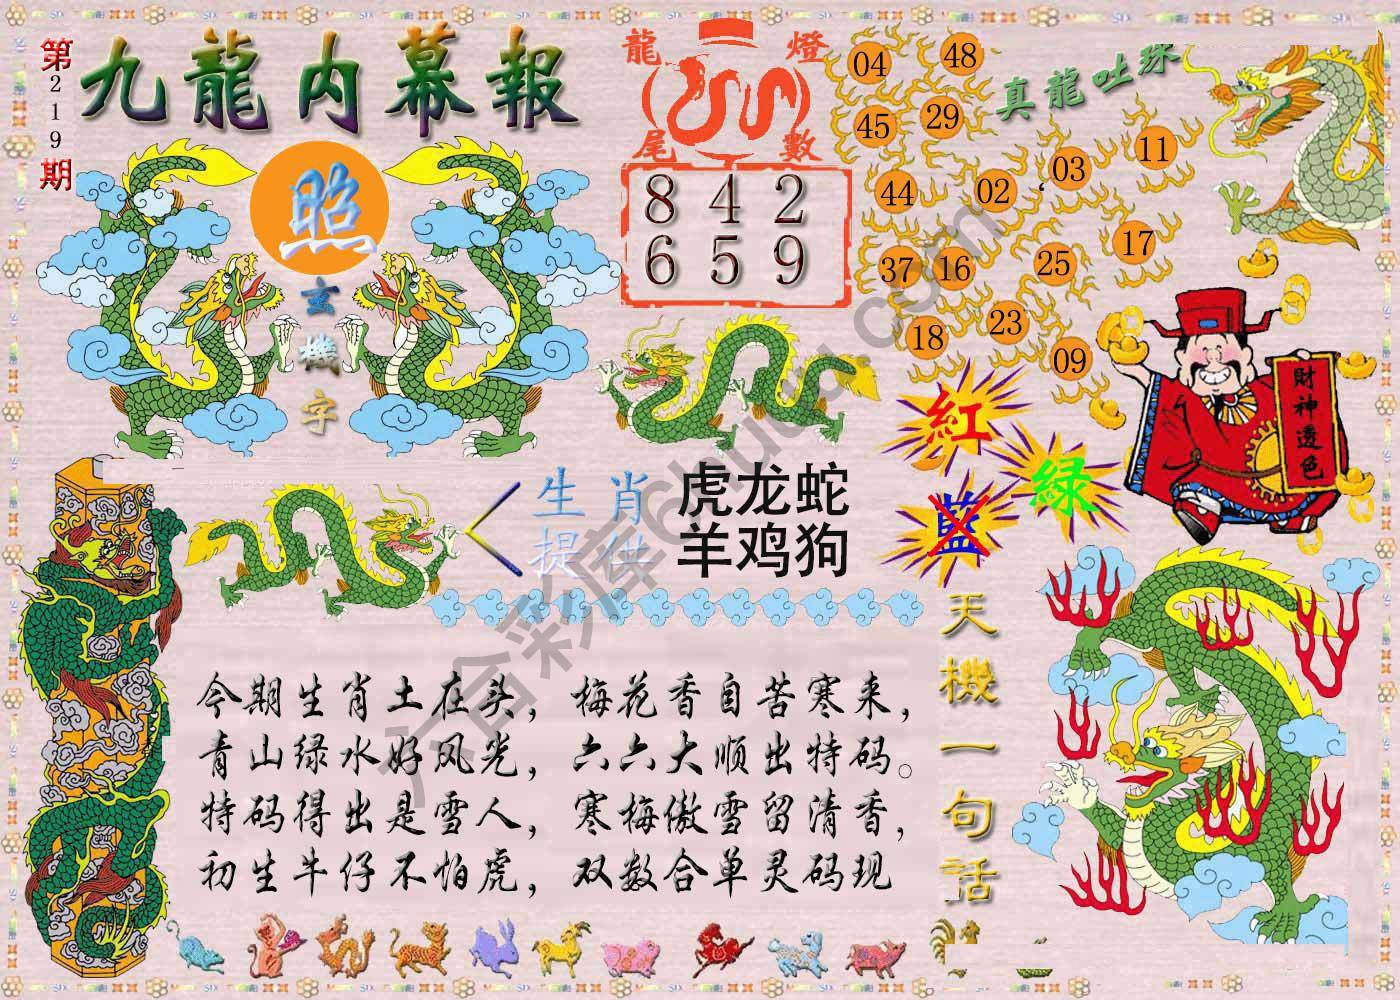 第219期
九龍内幕報
照
玄機字
龍燈尾數
8 4 2
6 5 9
真龍吐珠
04 48
45 29
44 02 03 11
37 16 25 17
18 23 09
財神透色
紅
綠
藍
生肖提供
虎龙蛇
羊鸡狗
今期生肖土在头，梅花香自苦寒来，
青山绿水好风光，六六大顺出特码。
特码得出是雪人，寒梅傲雪留清香，
初生牛仔不怕虎，双数合单灵码现
天機一句话
六合彩库6huuu.com